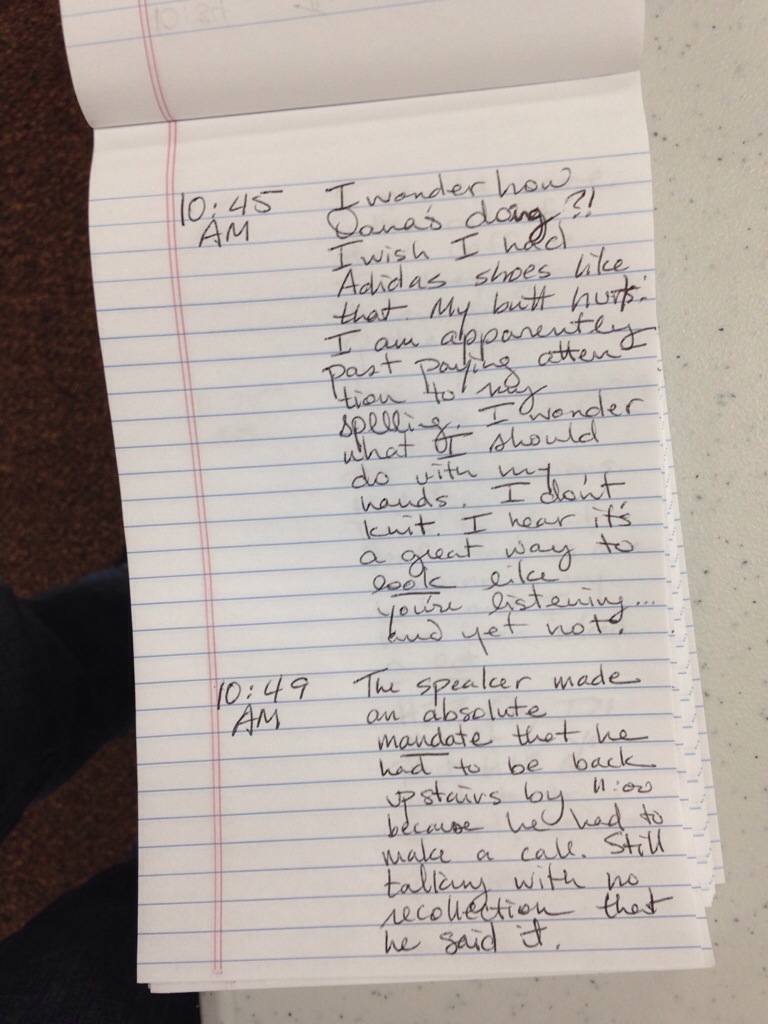 10:45 AM
I wonder how
Dana's doing?!
I wish I had
Adidas shoes like
that. My butt hurts.
I am apparently
past paying atten
tion to my
spelling. I wonder
what I should
do with my
hands. I don't
knit. I hear it's
a great way to
look like
you're listening...
and yet not.
10:49 AM
The speaker made
an absolute
mandate that he
had to be back
upstairs by 11:00
because he had to
make a call. Still
talking with no
recollection that
he said it.